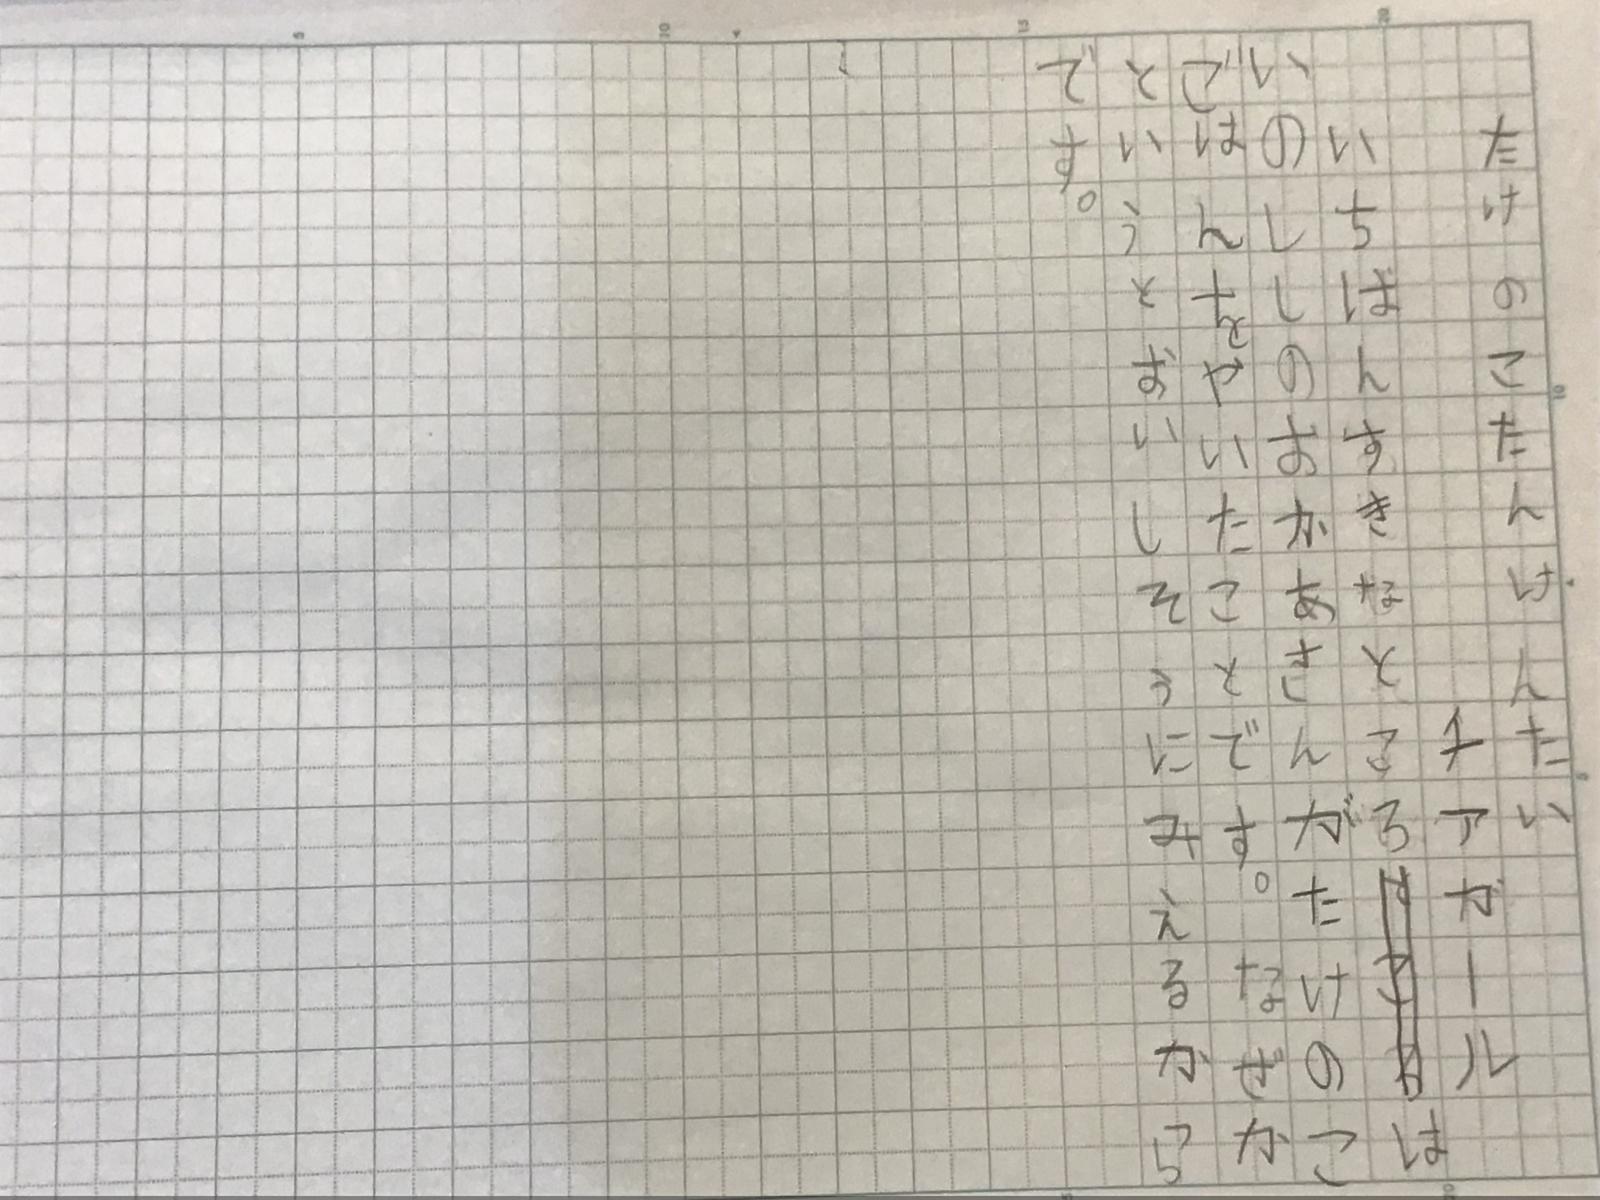 たけのこたんけんたい
チアガール
いちばんすきなところは
いのししのおかあさんがたけのこ
ごはんをやいたことです。なぜか
というとおいしそうにみえるから
です。